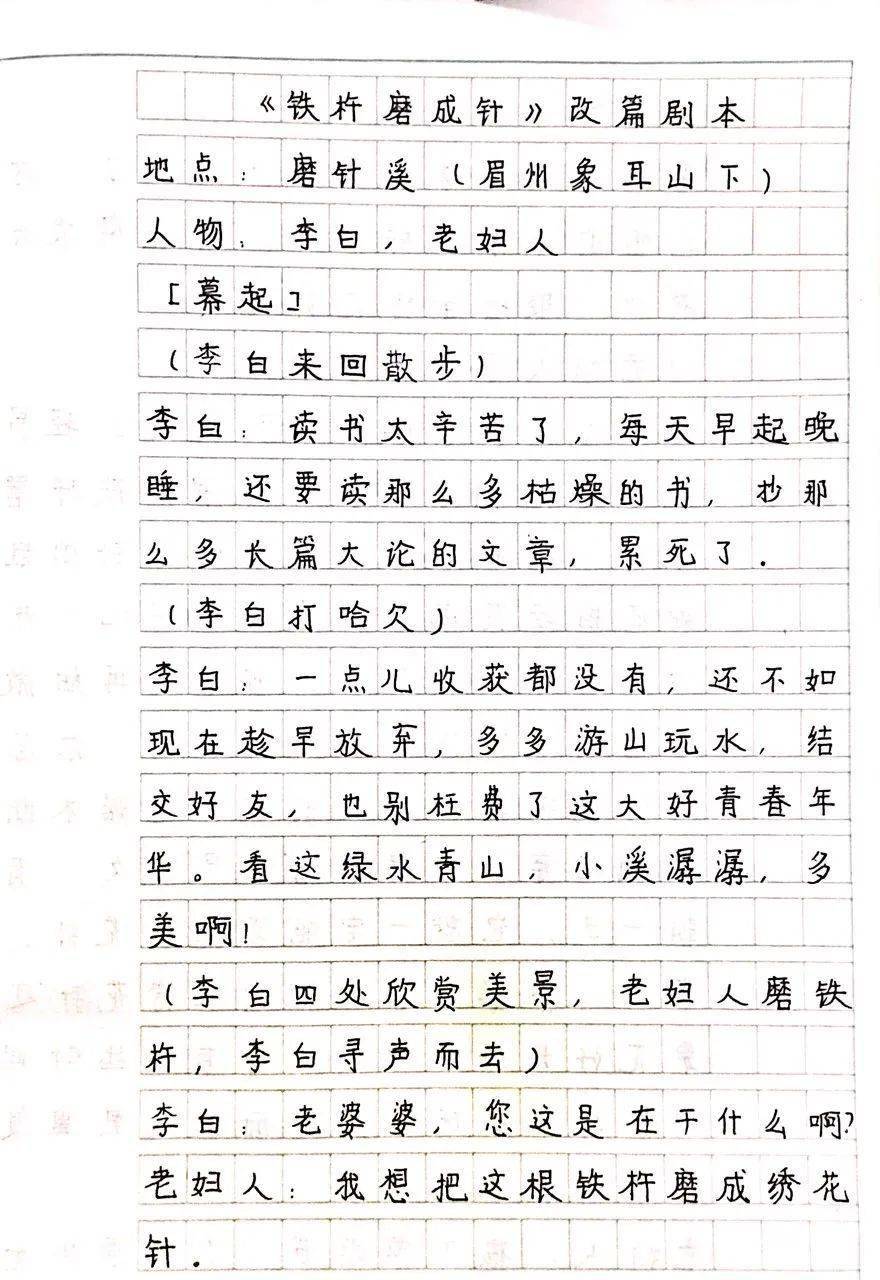 《铁杵磨成针》改篇剧本
地点：磨针溪（眉州象耳山下）
人物：李白，老妇人
[幕起]
（李白来回散步）
李白：读书太辛苦了，每天早起晚
睡，还要读那么多枯燥的书，抄那
么多长篇大论的文章，累死了．
（李白打哈欠）
李白：一点儿收获都没有，还不如
现在趁早放弃，多多游山玩水，结
交好友，也别枉费了这大好青春年
华。看这绿水青山，小溪潺潺，多
美啊！
（李白四处欣赏美景，老妇人磨铁
杵，李白寻声而去）
李白：老婆婆，您这是在干什么啊？
老妇人：我想把这根铁杵磨成绣花
针．